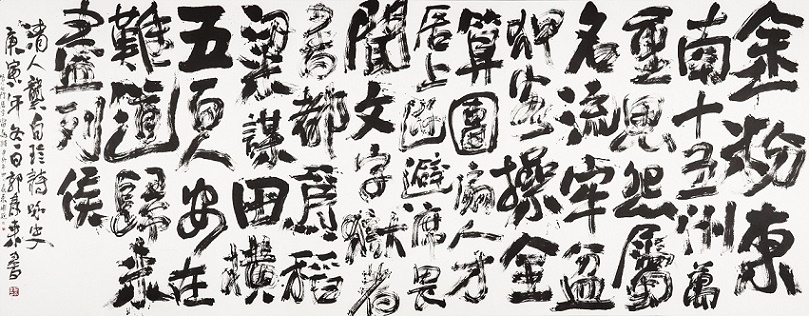 金粉東
南十五洲萬
重恩怨屬
名流牢盆
狎客操全
算團扇人才
居上游避席畏
聞文字獄著
書都為稻
粱謀田橫
五百人安在
難道歸來
盡列侯
清人龔自珍詩詠史
庚寅年冬日郭康書